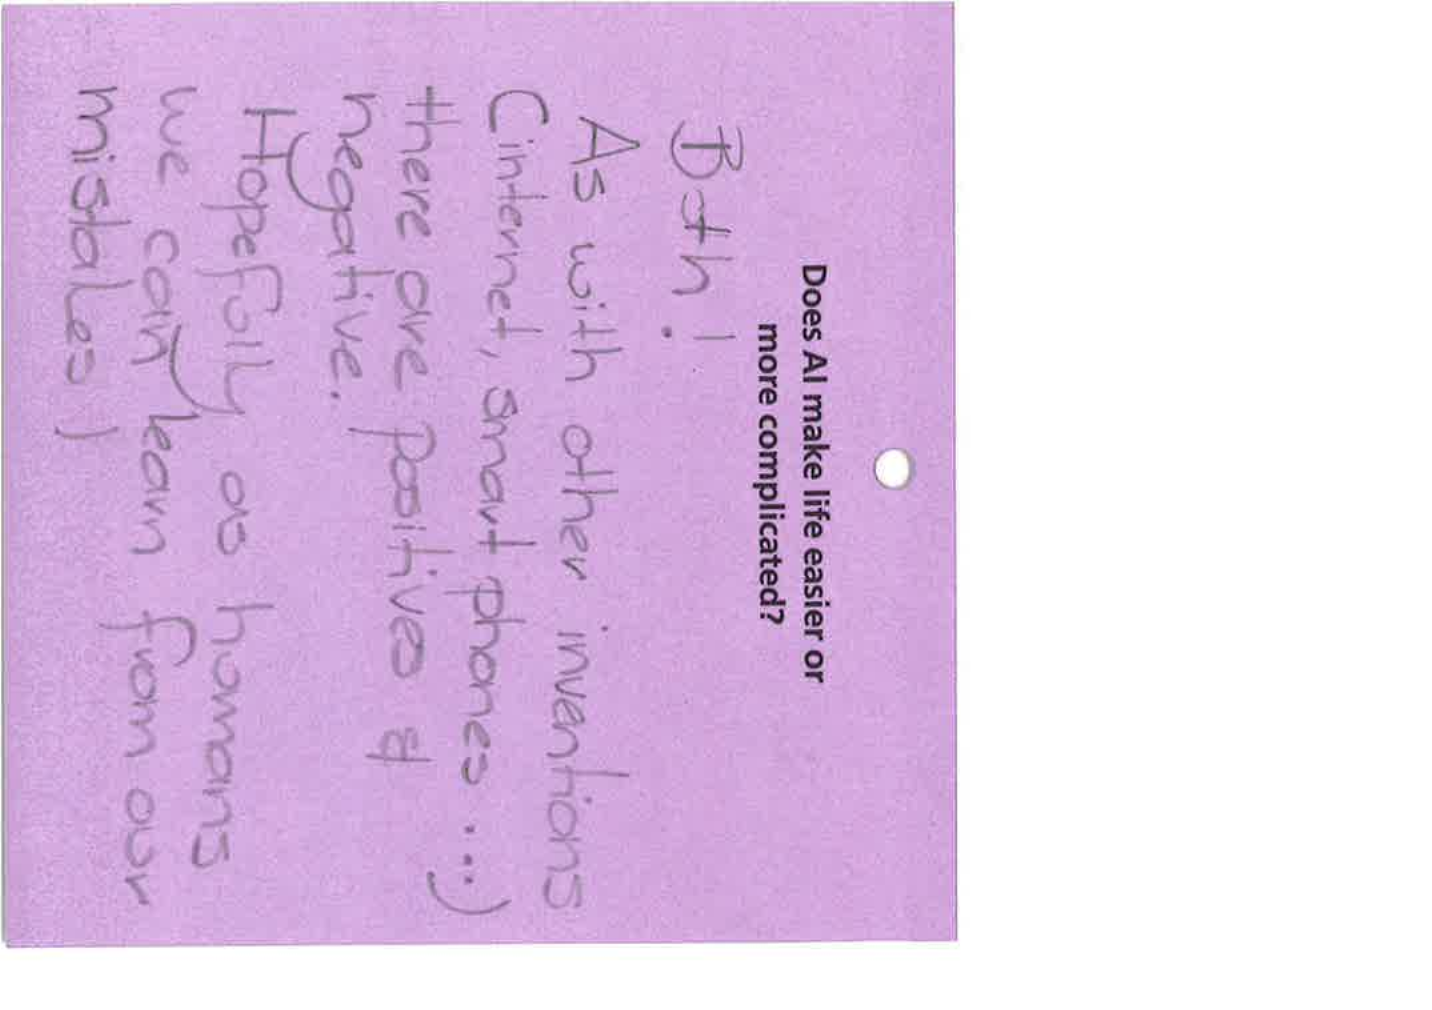 Does AI make life easier or
more complicated?
Both!
As with other inventions
(internet, smart phones...)
there are positives &
negative.
Hopefully as humans
we can learn from our
mistakes)